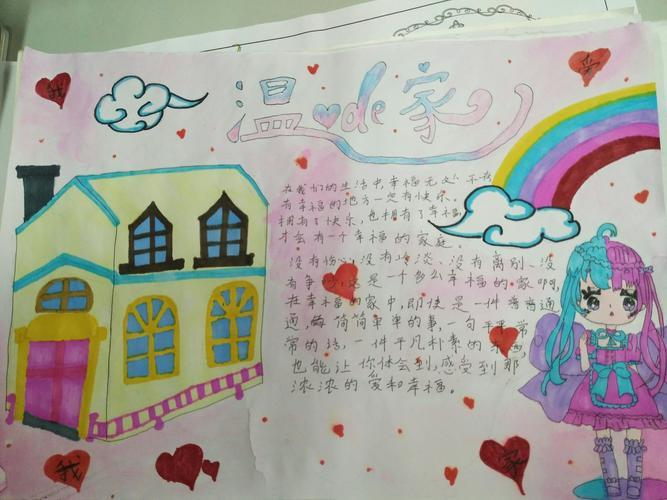 我
爱
温❤de家
在我们的生活中,幸福无处不在
有幸福的地方一定有快乐、
拥有了快乐,也拥有了幸福,
才会有一个幸福的家庭。
没有伤心、没有冷淡、没有离别、没
有争吵,这是一个多么幸福的家啊,
在幸福的家中,即使是一件普普通
通,简简单单的事,一句平平常
常的话,一件平凡朴素的
也能让你体会到,感受到那
浓浓的爱和幸福。
我
家